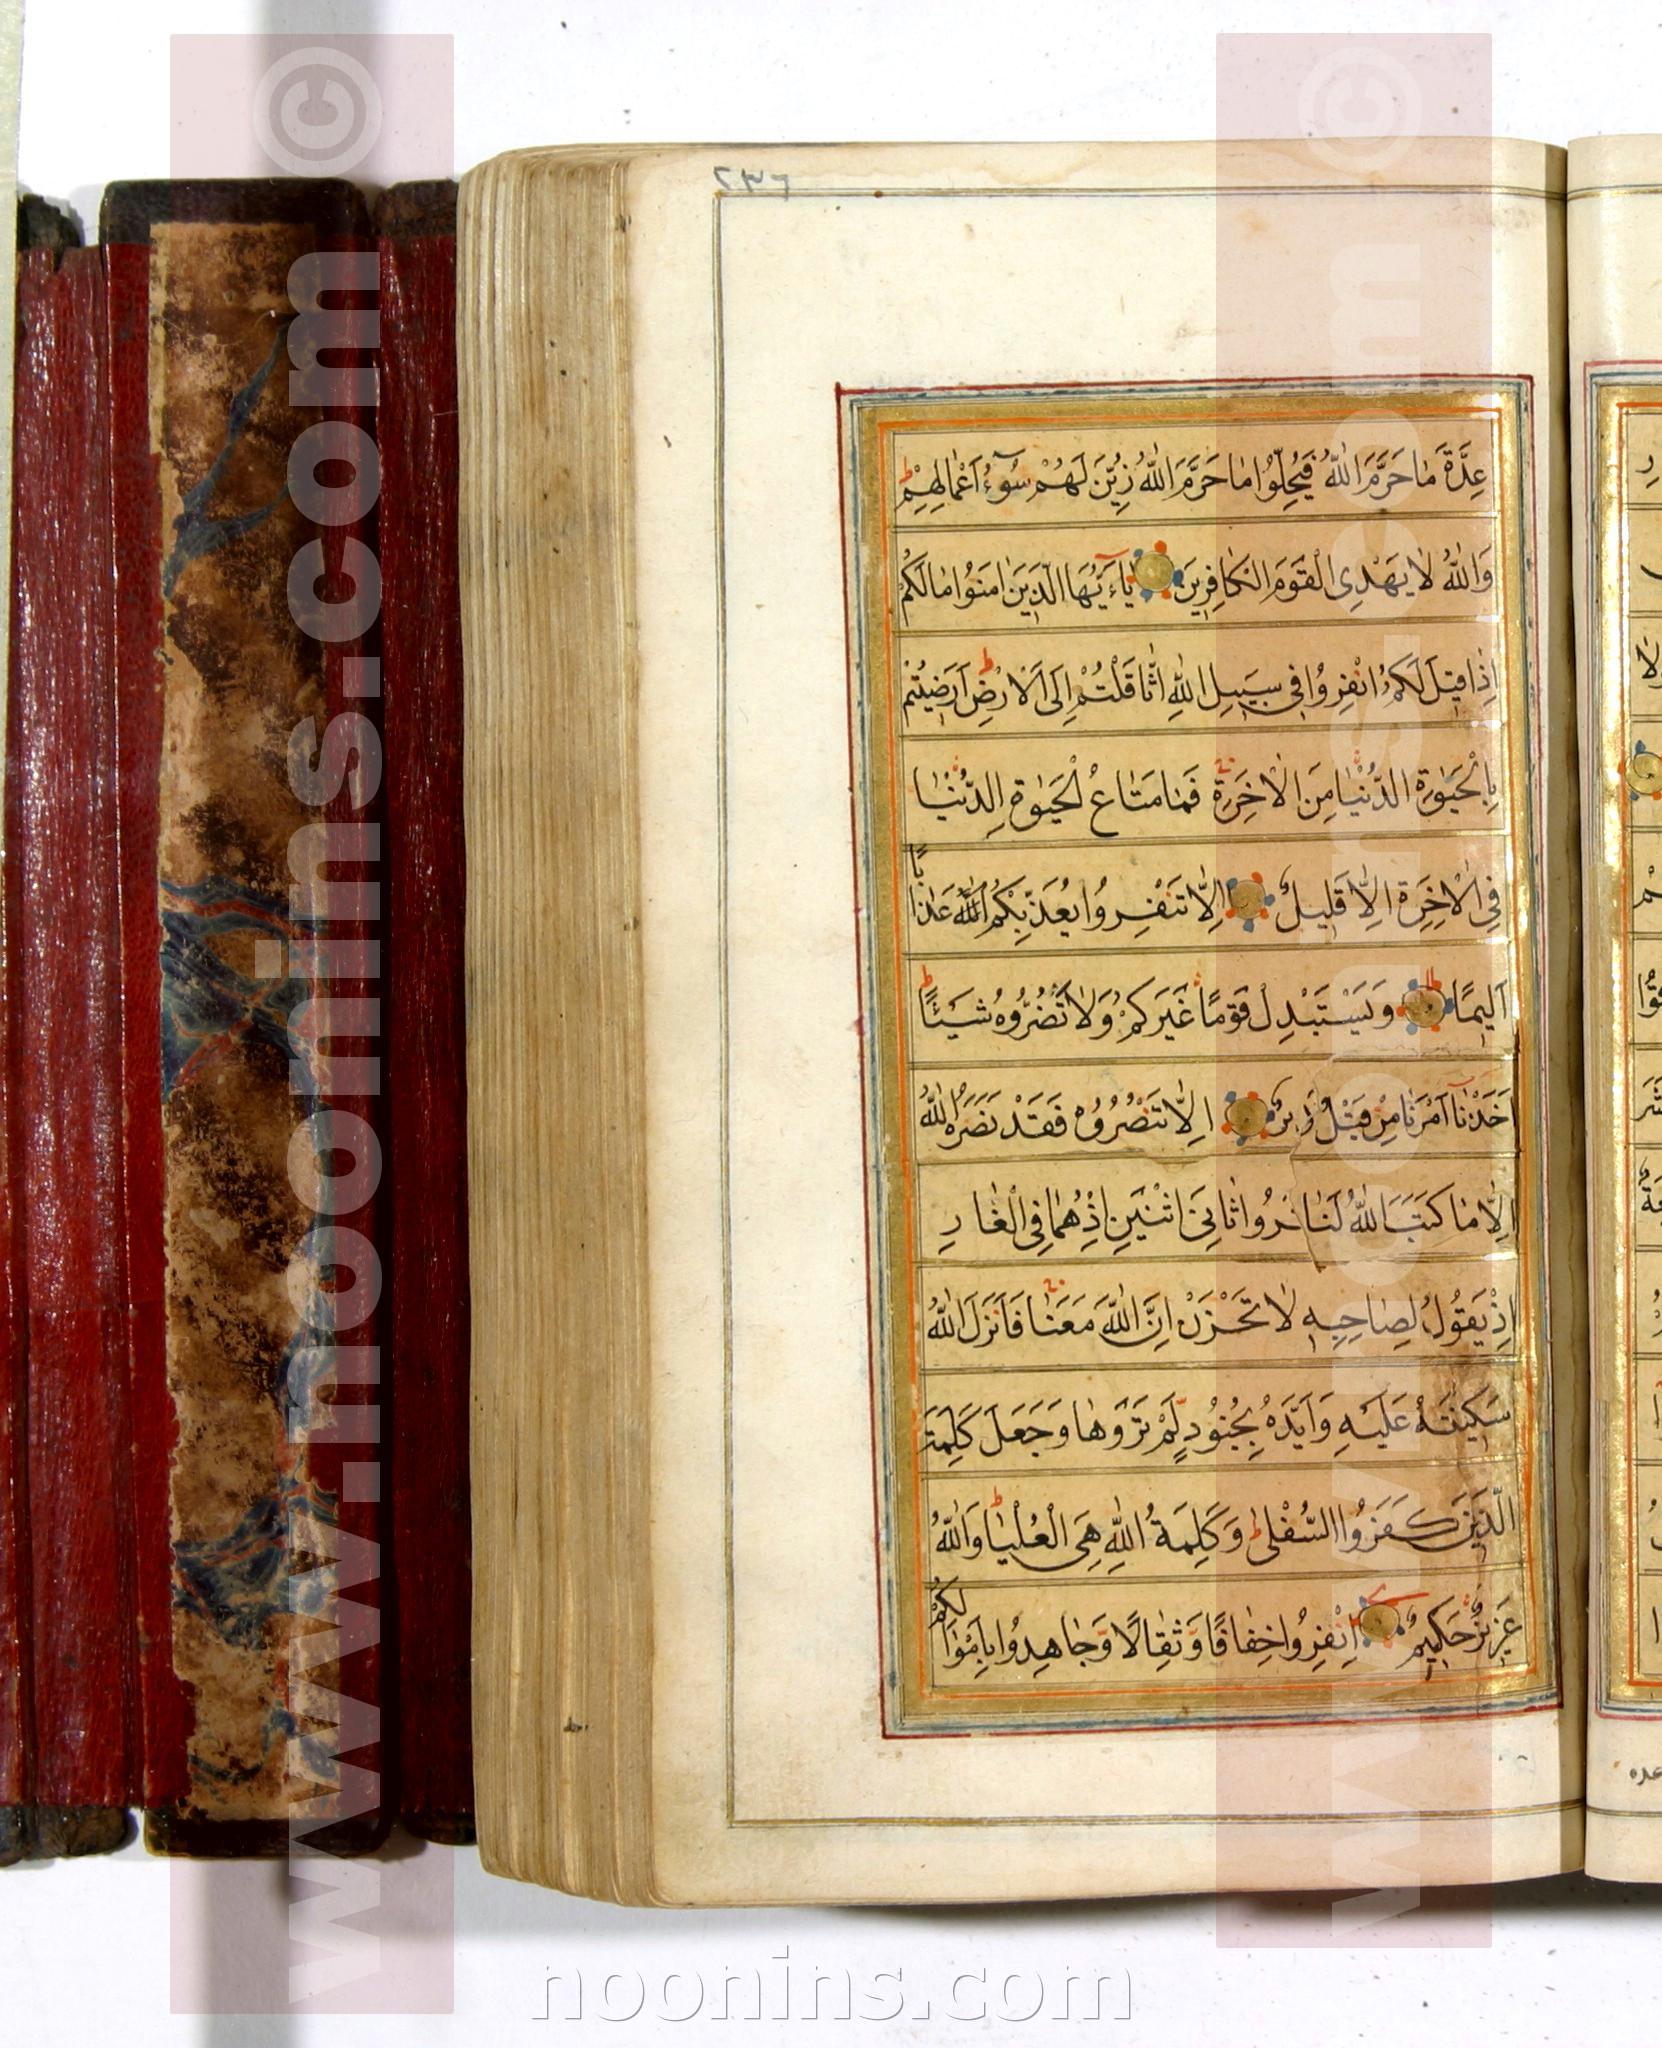 ۲۳۶
عِدَّةَ مَا حَرَّمَ اللهُ فَيُحِلُّوا مَا حَرَّمَ اللهُ زُيِّنَ لَهُمْ سُوءُ اَعْمَالِهِمْ
وَاللهُ لَا يَهْدِى الْقَوْمَ الْكَافِرِينَ يَاءَيُّهَا الَّذِينَ اٰمَنُوا مَا لَكُمْ
اِذَا قِيلَ لَكُمُ انْفِرُوا فِى سَبِيلِ اللهِ اثَّاقَلْتُمْ اِلَى الْاَرْضِ اَرَضِيتُمْ
بِالْحَيٰوةِ الدُّنْيَا مِنَ الْاٰخِرَةِ فَمَا مَتَاعُ الْحَيٰوةِ الدُّنْيَا
فِى الْاٰخِرَةِ اِلَّا قَلِيلٌ اِلَّا تَنْفِرُوا يُعَذِّبْكُمُ اللهُ عَذَابًا
اَلِيمًا وَيَسْتَبْدِلْ قَوْمًا غَيْرَكُمْ وَلَا تَضُرُّوهُ شَيْئًا
اَخَذْنَا اَمْرَنَا مِنْ قَبْلُ اِلَّا تَنْصُرُوهُ فَقَدْ نَصَرَهُ اللهُ
اِلَّا مَا كَتَبَ اللهُ لَنَا ثَانِىَ اثْنَيْنِ اِذْ هُمَا فِى الْغَارِ
اِذْ يَقُولُ لِصَاحِبِهِ لَا تَحْزَنْ اِنَّ اللهَ مَعَنَا فَاَنْزَلَ اللهُ
سَكِينَتَهُ عَلَيْهِ وَاَيَّدَهُ بِجُنُودٍ لَمْ تَرَوْهَا وَجَعَلَ كَلِمَةَ
الَّذِينَ كَفَرُوا السُّفْلٰى وَكَلِمَةُ اللهِ هِىَ الْعُلْيَا وَاللهُ
عَزِيزٌ حَكِيمٌ اِنْفِرُوا خِفَافًا وَثِقَالًا وَجَاهِدُوا بِاَمْوَالِكُمْ
عده
www.noonins.com ©
www.noonins.com ©
noonins.com